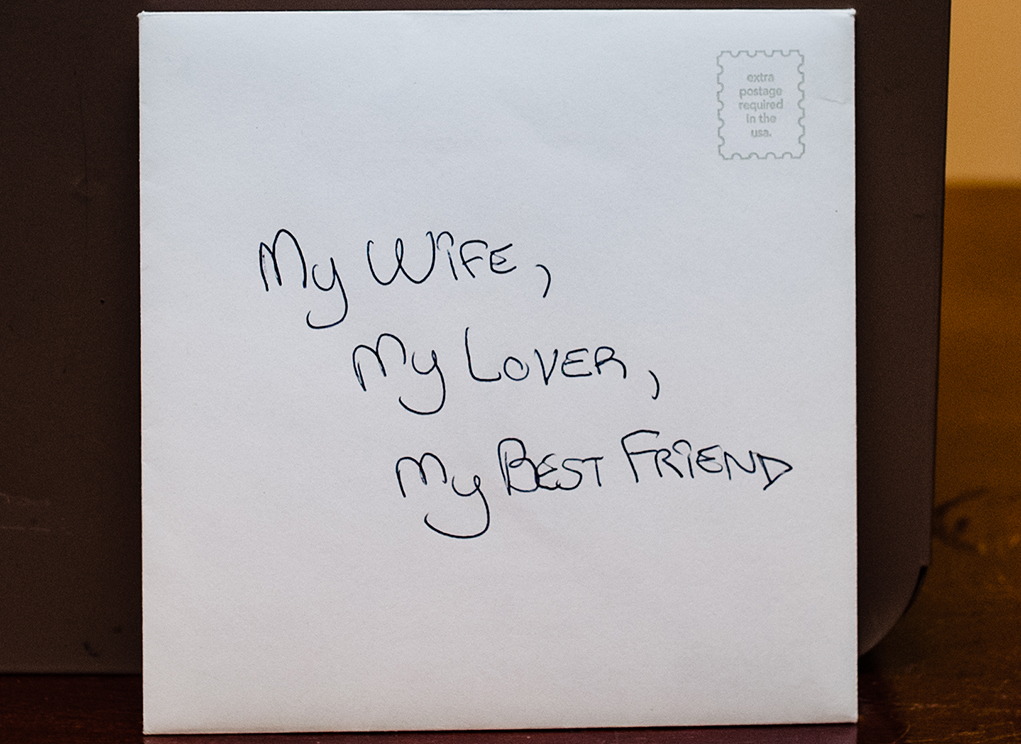 extra
postage
required
in the
usa.
My WiFE,
My LOVER,
My BEST FRiEND